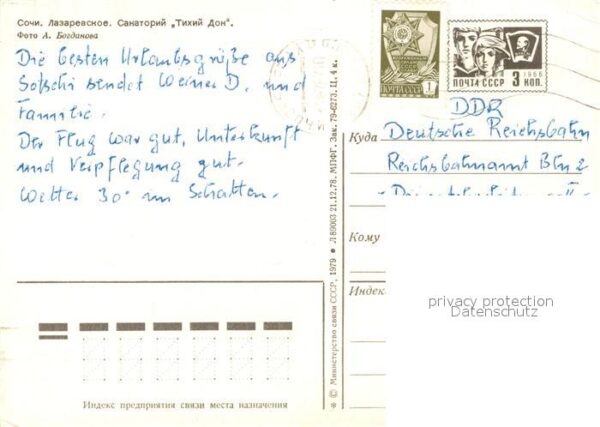 Сочи. Лазаревское. Санаторий „Тихий Дон".
Фото А. Богданова
Die besten Urlaubsgrüße aus
Sotschi sendet Weiner D. und
Familie.
Der Flug war gut, Unterkunft
und Verpflegung gut.
Wetter 30° im Schatten.
ПОЧТА СССР 1
1966
ПОЧТА СССР 3 КОП.
DDR
Куда Deutsche Reichsbahn
Reichsbahnamt Bln 2
Кому
Индекс
privacy protection
Datenschutz
※ © Министерство связи СССР, 1979 ※ Л 89063 21.12.78. МПФГ. Зак. 79-6273. Ц. 4 к.
Индекс предприятия связи места назначения